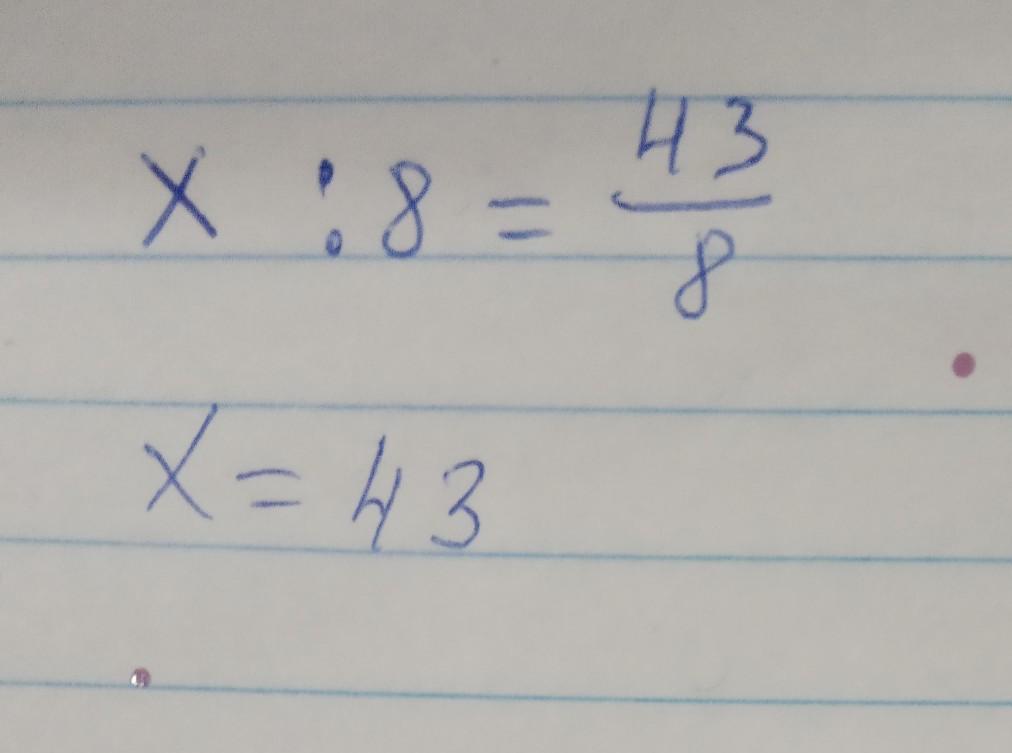 X : 8 = 43/8
X = 43